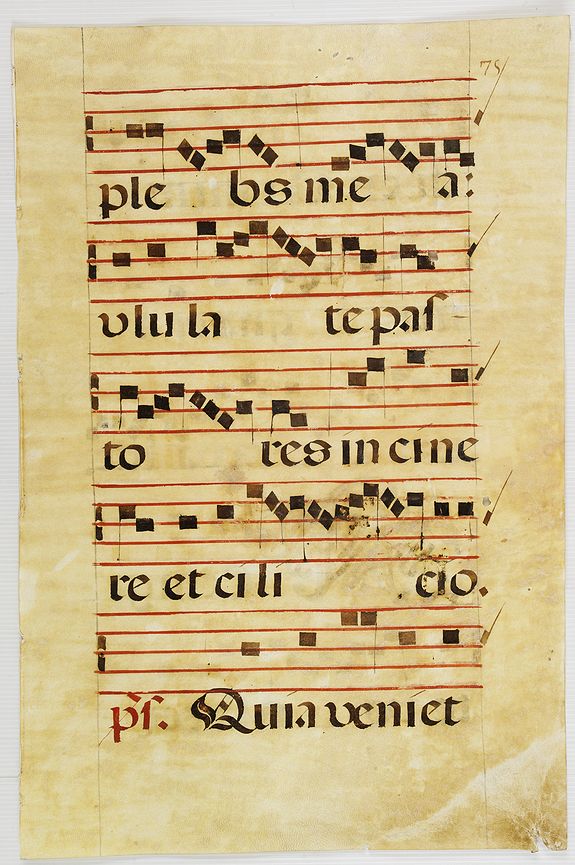 75
ple bs me a:
vlu la te pas
to res in cine
re et ci li cio.
ps. Quia veniet